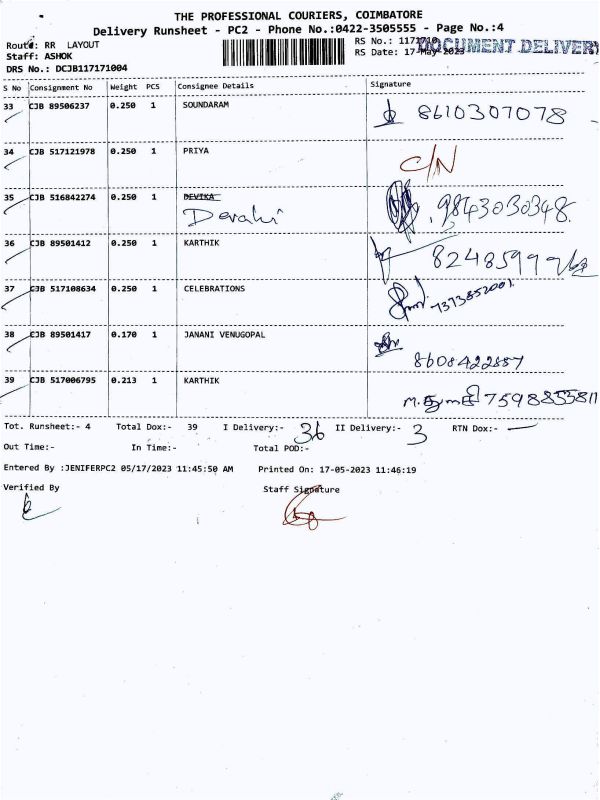 THE PROFESSIONAL COURIERS, COIMBATORE
Delivery Runsheet - PC2 - Phone No.:0422-3505555 - Page No.:4
Route: RR LAYOUT RS No.: DOCUMENT DELIVERY
Staff: ASHOK RS Date: 17-May-2023
DRS No.: DCJB117171004
S No Consignment No Weight PCS Consignee Details Signature
33 CJB 89506237 0.250 1 SOUNDARAM 8610307078
34 CJB 517121978 0.250 1 PRIYA C/N
35 CJB 516842274 0.250 1 DEVIKA 9843030348
Devaki
36 CJB 89501412 0.250 1 KARTHIK
37 CJB 517108634 0.250 1 CELEBRATIONS 7373852001
38 CJB 89501417 0.170 1 JANANI VENUGOPAL
8608422887
39 CJB 517006795 0.213 1 KARTHIK 7598855811
Tot. Runsheet:- 4 Total Dox:- 39 I Delivery:- 36 II Delivery:- 3 RTN Dox:- —
Out Time:- In Time:- Total POD:-
Entered By :JENIFERPC2 05/17/2023 11:45:50 AM Printed On: 17-05-2023 11:46:19
Verified By Staff Signature